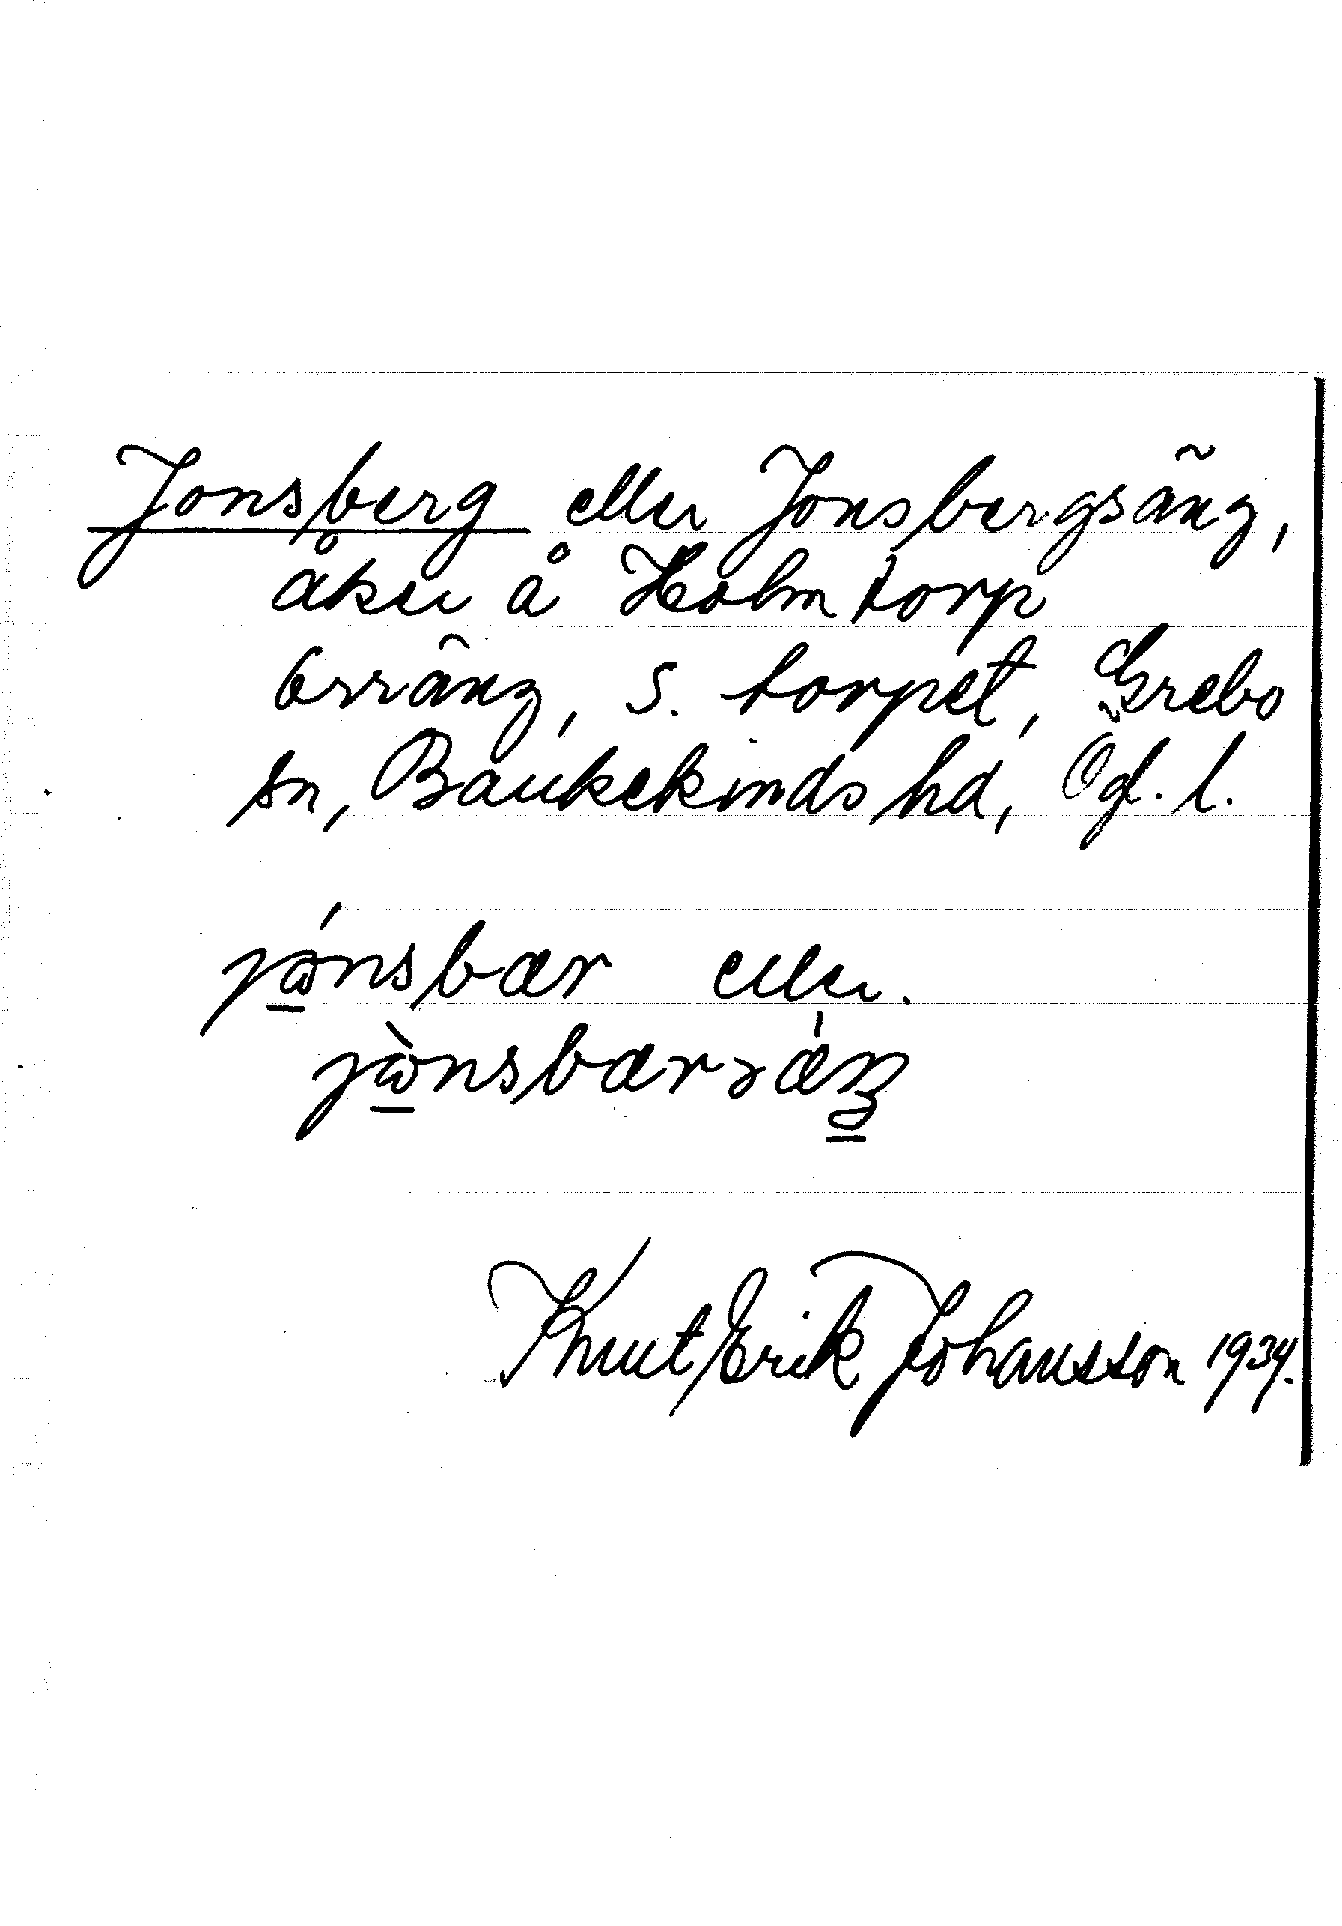 Jonsberg eller Jonsbergsäng,
åker å Holmtorp
örräng, S. torpet, Grebo
sn, Bankekinds hd, Ög. l.
jɷ́nsbær eller
jɷ̀nsbærsǽŋ
Knut Erik Johansson 1934.